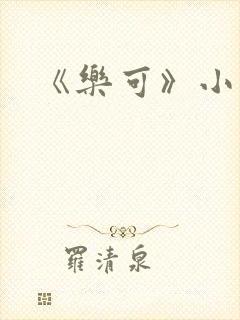 《樂可》小
羅清泉